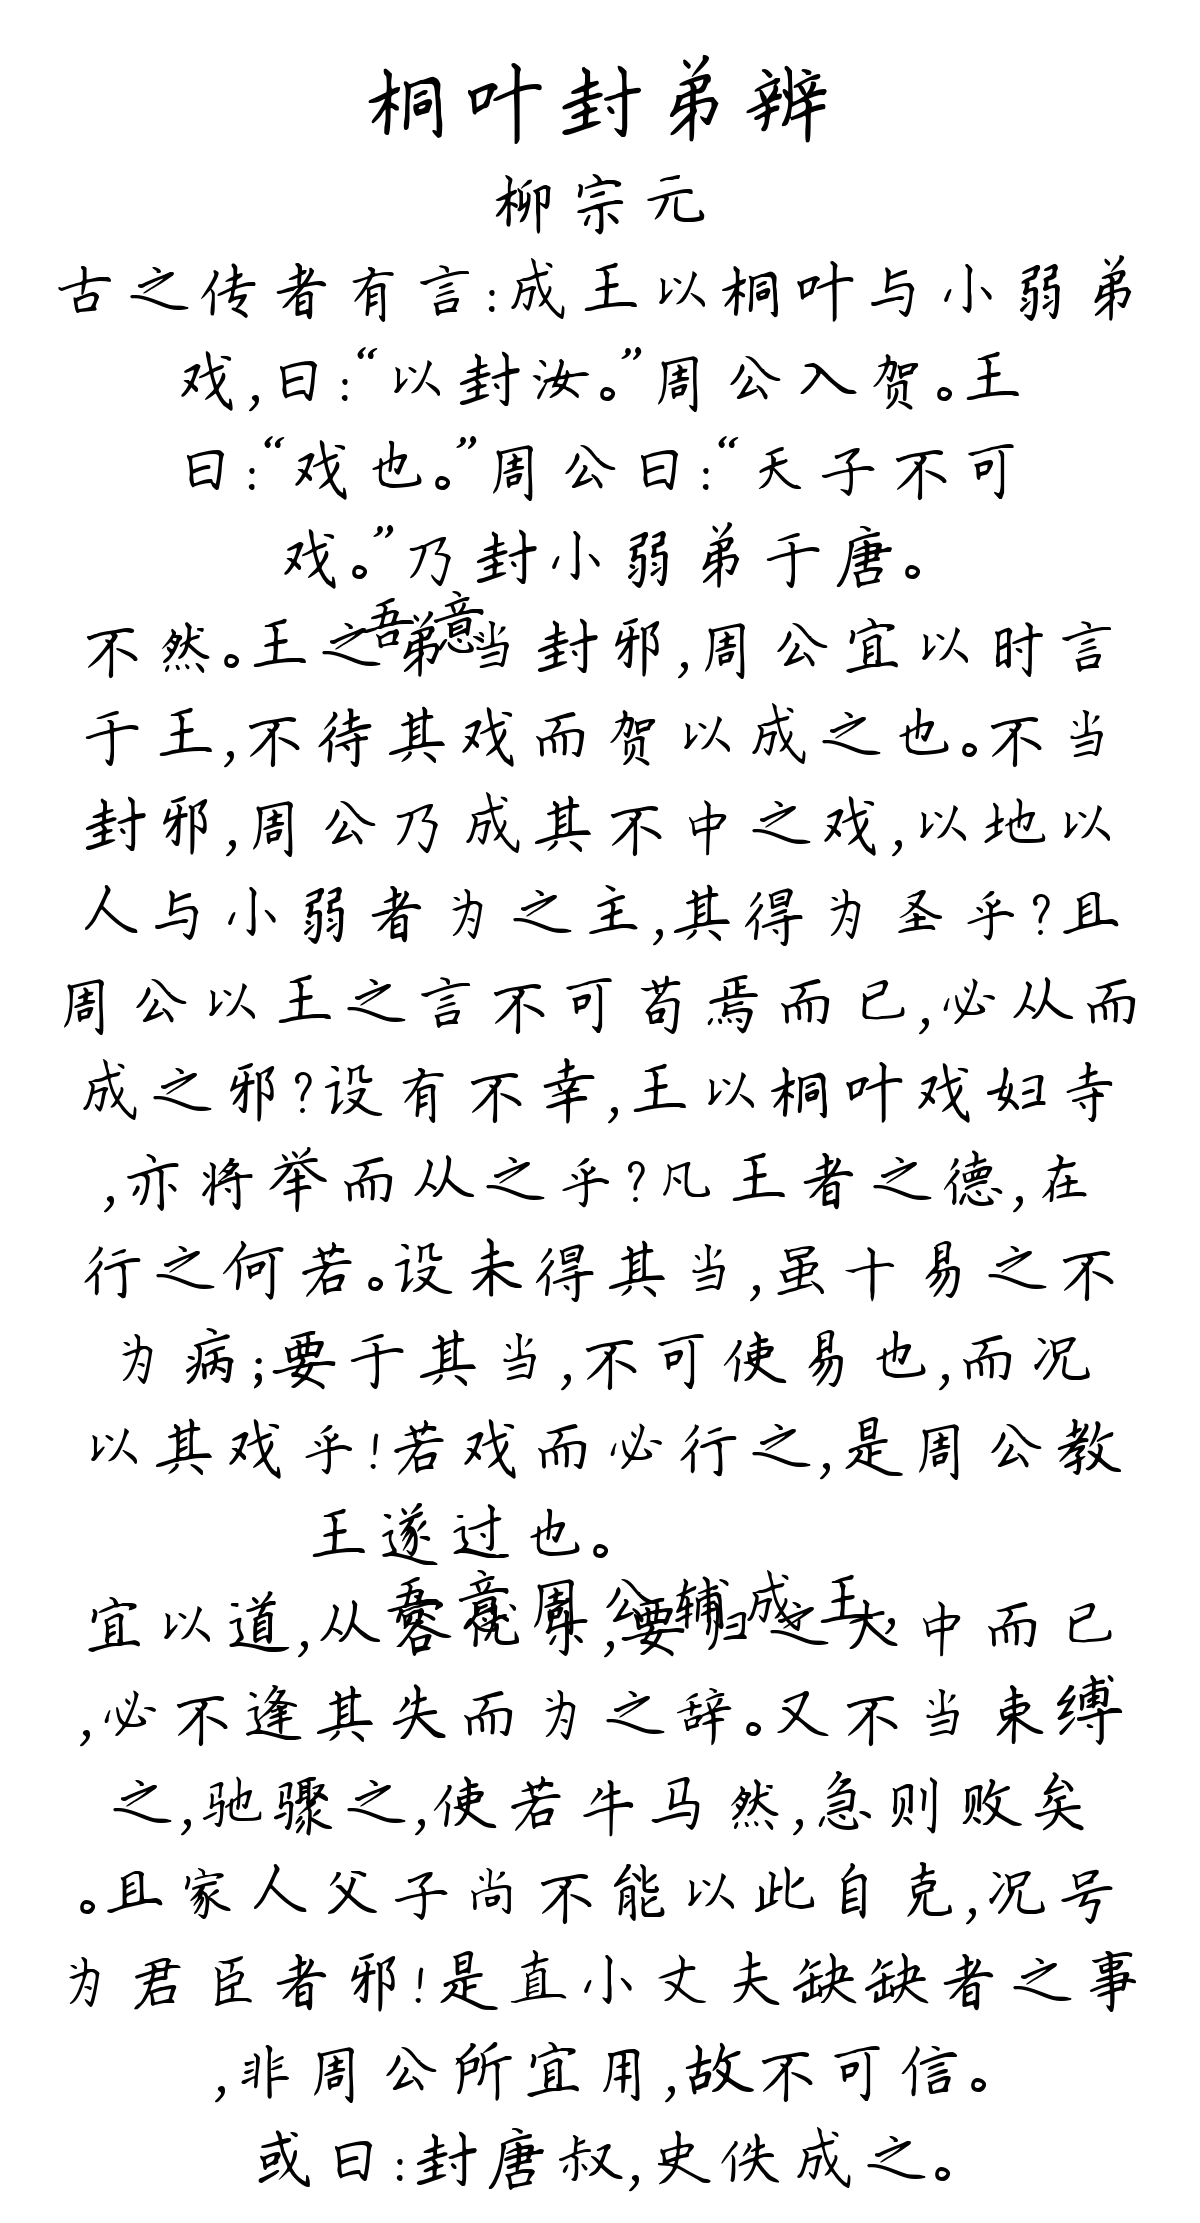 桐叶封弟辨
柳宗元
古之传者有言:成王以桐叶与小弱弟
戏,曰:“以封汝。”周公入贺。王
曰:“戏也。”周公曰:“天子不可
戏。”乃封小弱弟于唐。
吾意
不然。王之弟当封邪,周公宜以时言
于王,不待其戏而贺以成之也。不当
封邪,周公乃成其不中之戏,以地以
人与小弱者为之主,其得为圣乎?且
周公以王之言不可苟焉而已,必从而
成之邪?设有不幸,王以桐叶戏妇寺
,亦将举而从之乎?凡王者之德,在
行之何若。设未得其当,虽十易之不
为病;要于其当,不可使易也,而况
以其戏乎!若戏而必行之,是周公教
王遂过也。
吾意周公辅成王,
宜以道,从容优乐,要归之大中而已
,必不逢其失而为之辞。又不当束缚
之,驰骤之,使若牛马然,急则败矣
。且家人父子尚不能以此自克,况号
为君臣者邪!是直小丈夫缺缺者之事
,非周公所宜用,故不可信。
或曰:封唐叔,史佚成之。